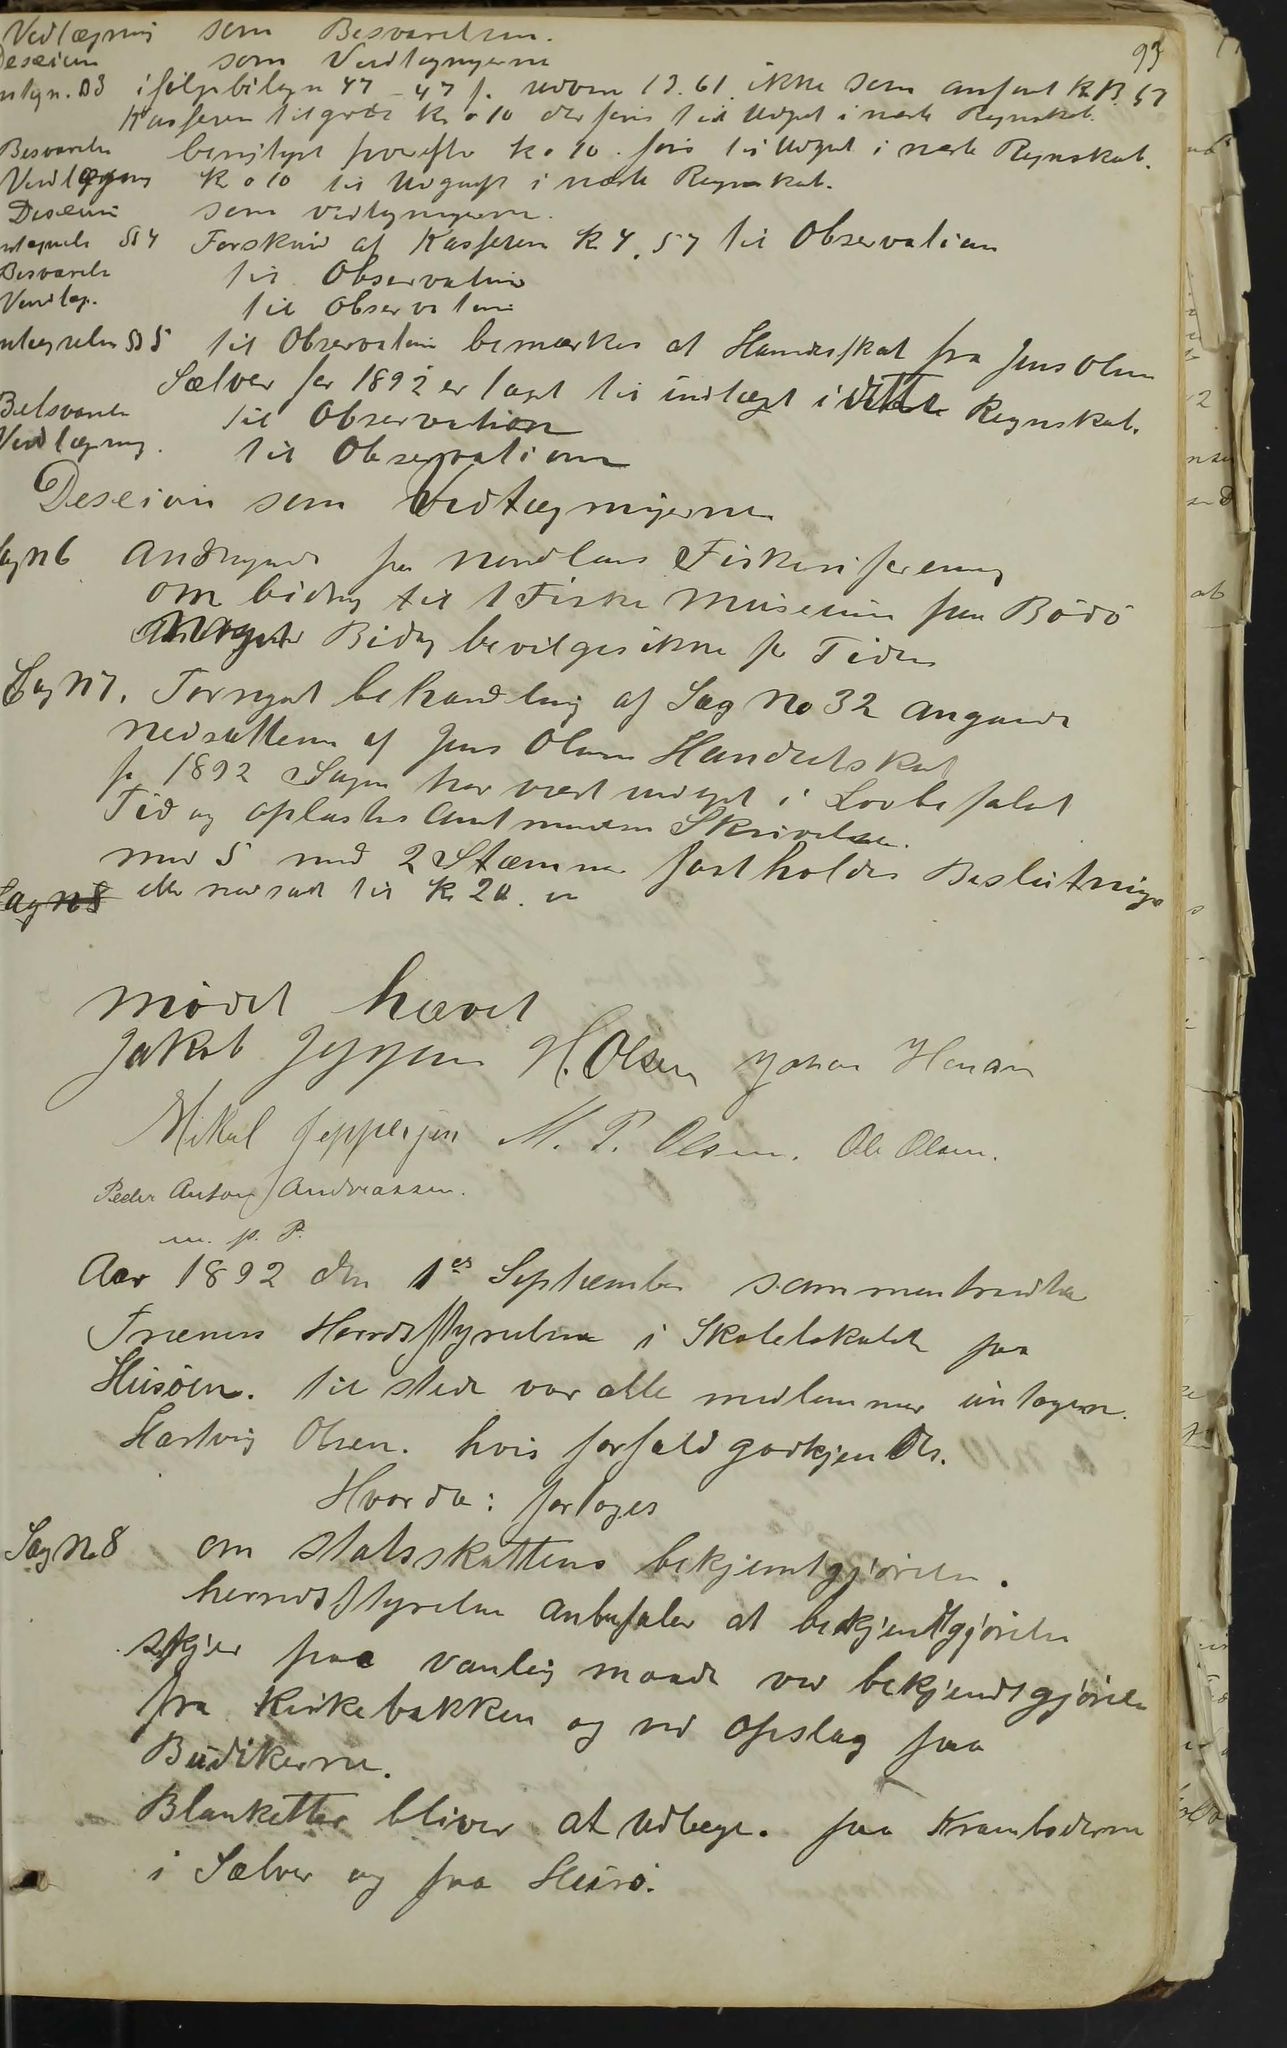 93
Vedtægning som Besvarelsen.
Deseion som Vedtegnyerne
ntegn. No 3 ifølge bilagn 47 – 47 f. udom 13.61. ikke som anført Kr 13.57
Kasseren tilgode Kr 0 10 der føris til Udget i næste Regnskab.
Besvarelse herefter Kr 0 10 føris til Udget i næste Regnskab.
Vedtægning Kr 0 10 til Udgift i næste Regnskab.
Deseion som vedtegnyerne.
ntegnelse No 4 Forskud af Kasseren Kr 4,57 til Observation
Besvarelse til Observation
Vedtæg. til Observation
ntegnelse No 5 til Observation bemærkes at Handelsskat fra Jens Olsen
Sælvær for 1892 er taget til indtægt i dette Regnskab.
Betsvarelse til Observation
Vedtægning. til Observation
Deseion som Vedtægningerne
Sag N 6 Andragende fra Nordlans Fiskeriforening
om bidrag til 1 Fiske Museum paa Bodö
Noget Bidrag bevilges ikke for Tiden
Sag N 7. Fornyet behandling af Sag No 32 angaaende
nedsættelse af Jens Olsens Handelsskat
for 1892 Sagen har været udlagt i Lovbefalet
Tid og oplæstes Amtmandens Skrivelse.
med 5 mod 2 Stæmmer fastholdes Beslutningen
Sag N 8 eller nedsat til Kr 20.
Mödet hævet
Jakob Jeppesen H. Olsen Johan Hansen
Mikal Jeppesen M. P. Olsen. Ole Olsen.
Peder Anton Andreassen.
m. p. P.
Aar 1892 den 1es September sammentraadte
Trænens Herredsstyrelse i Skolelokalet paa
Husöen. til stede var alle medlemmer untagen
Hartvig Olsen. hvis forfald godkjendtes.
Hvorda: fortoges
Sag No 8 om statsskattens bekjentgjörelse.
herredsstyrelsen anbefaler at bekjentgjörelse
skjer paa vanlig maade ved bekjendtgjörelse
fra Kirkebakken og ved Opslag paa
Budikerne.
Blanketter bliver at udlæge. paa Kramboderne
i Sælver og paa Husö.